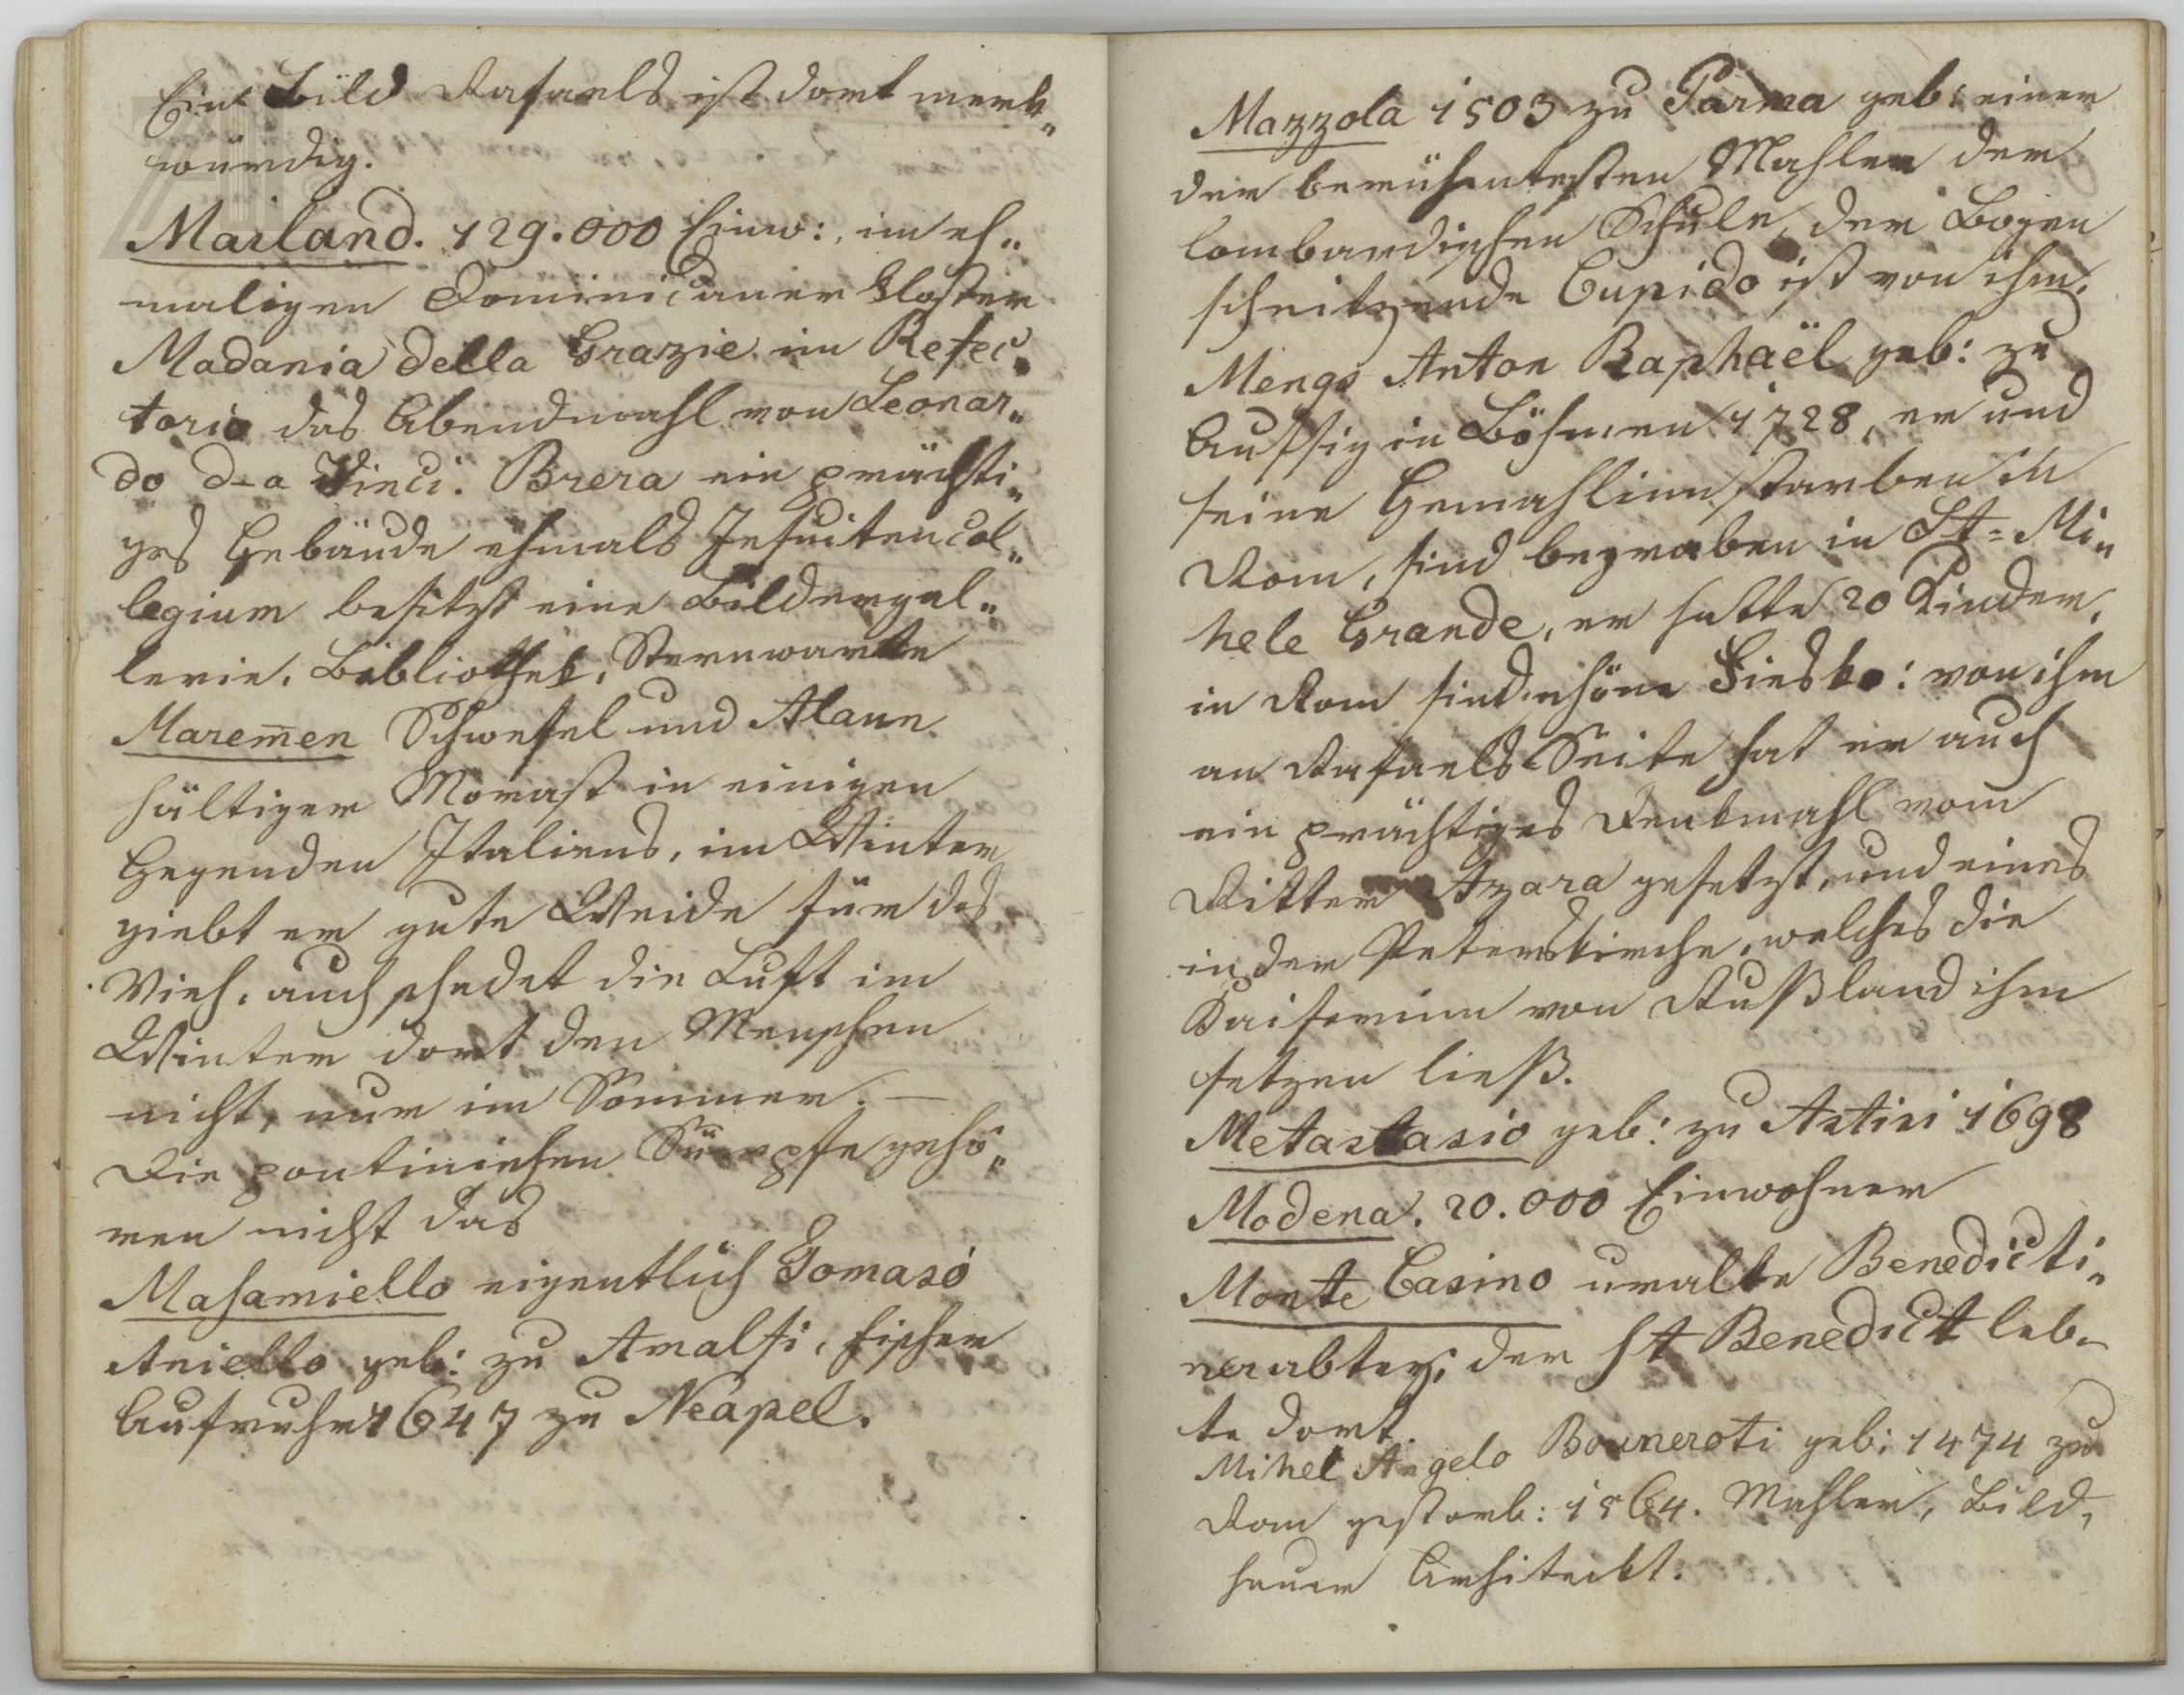 Eine Bild Rafaels ist dort merk„
würdig.
Mailand. 129.000 Einw:, im eh„
maligen Dominicaner Kloster
Madania della Grazie im Refec„
torio das Abendmahl von Leonar„
do d-a Vinci. Brera ein prächti„
ges Gebäude ehmals Jesuitencol„
legium besitzt eine Bildergal„
lerie, Bibliothek, Sternwarte
Marem̄en Schwefel und Alaun
hältiger Morast in einigen
Gegenden Italiens, im Winter
giebt er gute Weide für das
Vieh, auch schadet die Luft im
Winter dort den Menschen
nicht, nur im Sommer. —
Die pontinischen Sümpfe gehö„
ren nicht das
Masaniello eigentlich Tomaso
Aniello geb: zu Amalfi, Fischer
Aufruhr 1647 zu Neapel.
Mazzola 1503 zu Parma geb: einer
der berühmtesten Mahler der
lombardischen Schule, der Bogen
schnitzende Cupido ist von ihm.
Mengs Anton Raphaël geb: zu
Aussig in Böhmen 1728, er und
seine Gemahlinn starben in
Rom, sind begraben in St= Mi„
hele Grande, er hatte 20 Kinder,
in Rom sind schöne Fiesko: von ihm
an Rafaels Seite hat er auch
ein prächtiges Denkmahl vom
Ritter Azara gesetzt, und eines
in der Peterskirche, welches die
Kaiserinn von Rußland ihm
setzen ließ.
Metastasio geb: zu Astisi 1698
Modena. 20.000 Einwohner
Monte Casino uralte Benedicti„
nerabtey; der St Benedict leb-
te dort.
Mihel Angelo Bouneroti geb: 1474 zu
Rom gestorb: 1564. Mahler, Bild,
hauer Architeckt.